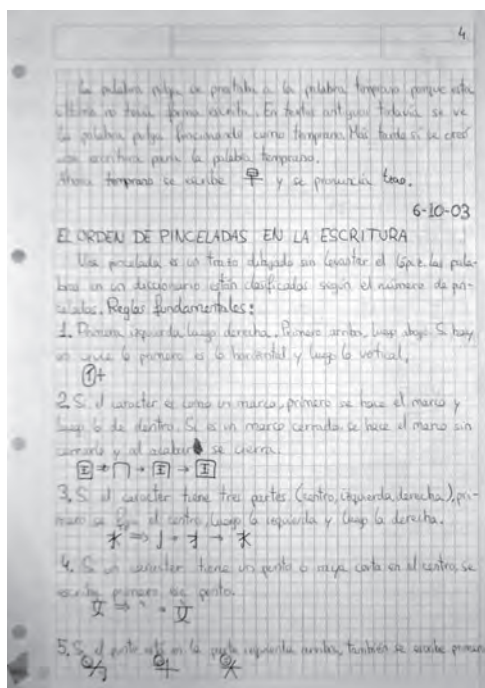 4
La palabra pulga se prestaba a la palabra temprano porque esta
última no tenía forma escrita. En textos antiguos todavía se ve
la palabra pulga funcionando como temprano. Más tarde sí se creó
una escritura para la palabra temprano.
Ahora temprano se escribe 早 y se pronuncia tsao.
6-10-03
EL ORDEN DE PINCELADAS EN LA ESCRITURA
Una pincelada es un trazo dibujado sin levantar el lápiz. Las pala-
bras en un diccionario están clasificadas según el número de pin-
celadas. Reglas fundamentales:
1. Primero izquierda luego derecha. Primero arriba, luego abajo. Si hay
un cruce lo primero es lo horizontal y luego lo vertical.
①+
2. Si el carácter es como un marco, primero se hace el marco y
luego lo de dentro. Si es un marco cerrado se hace el marco sin
cerrarlo y al acabar se cierra.
3. Si el carácter tiene tres partes (centro, izquierda, derecha), pri-
mero se el centro, luego la izquierda y luego la derecha.
4. Si un carácter tiene un punto o raya corta en el centro, se
escribe primero ese punto.
5. Si el punto está en la parte izquierda arriba, también se escribe primero